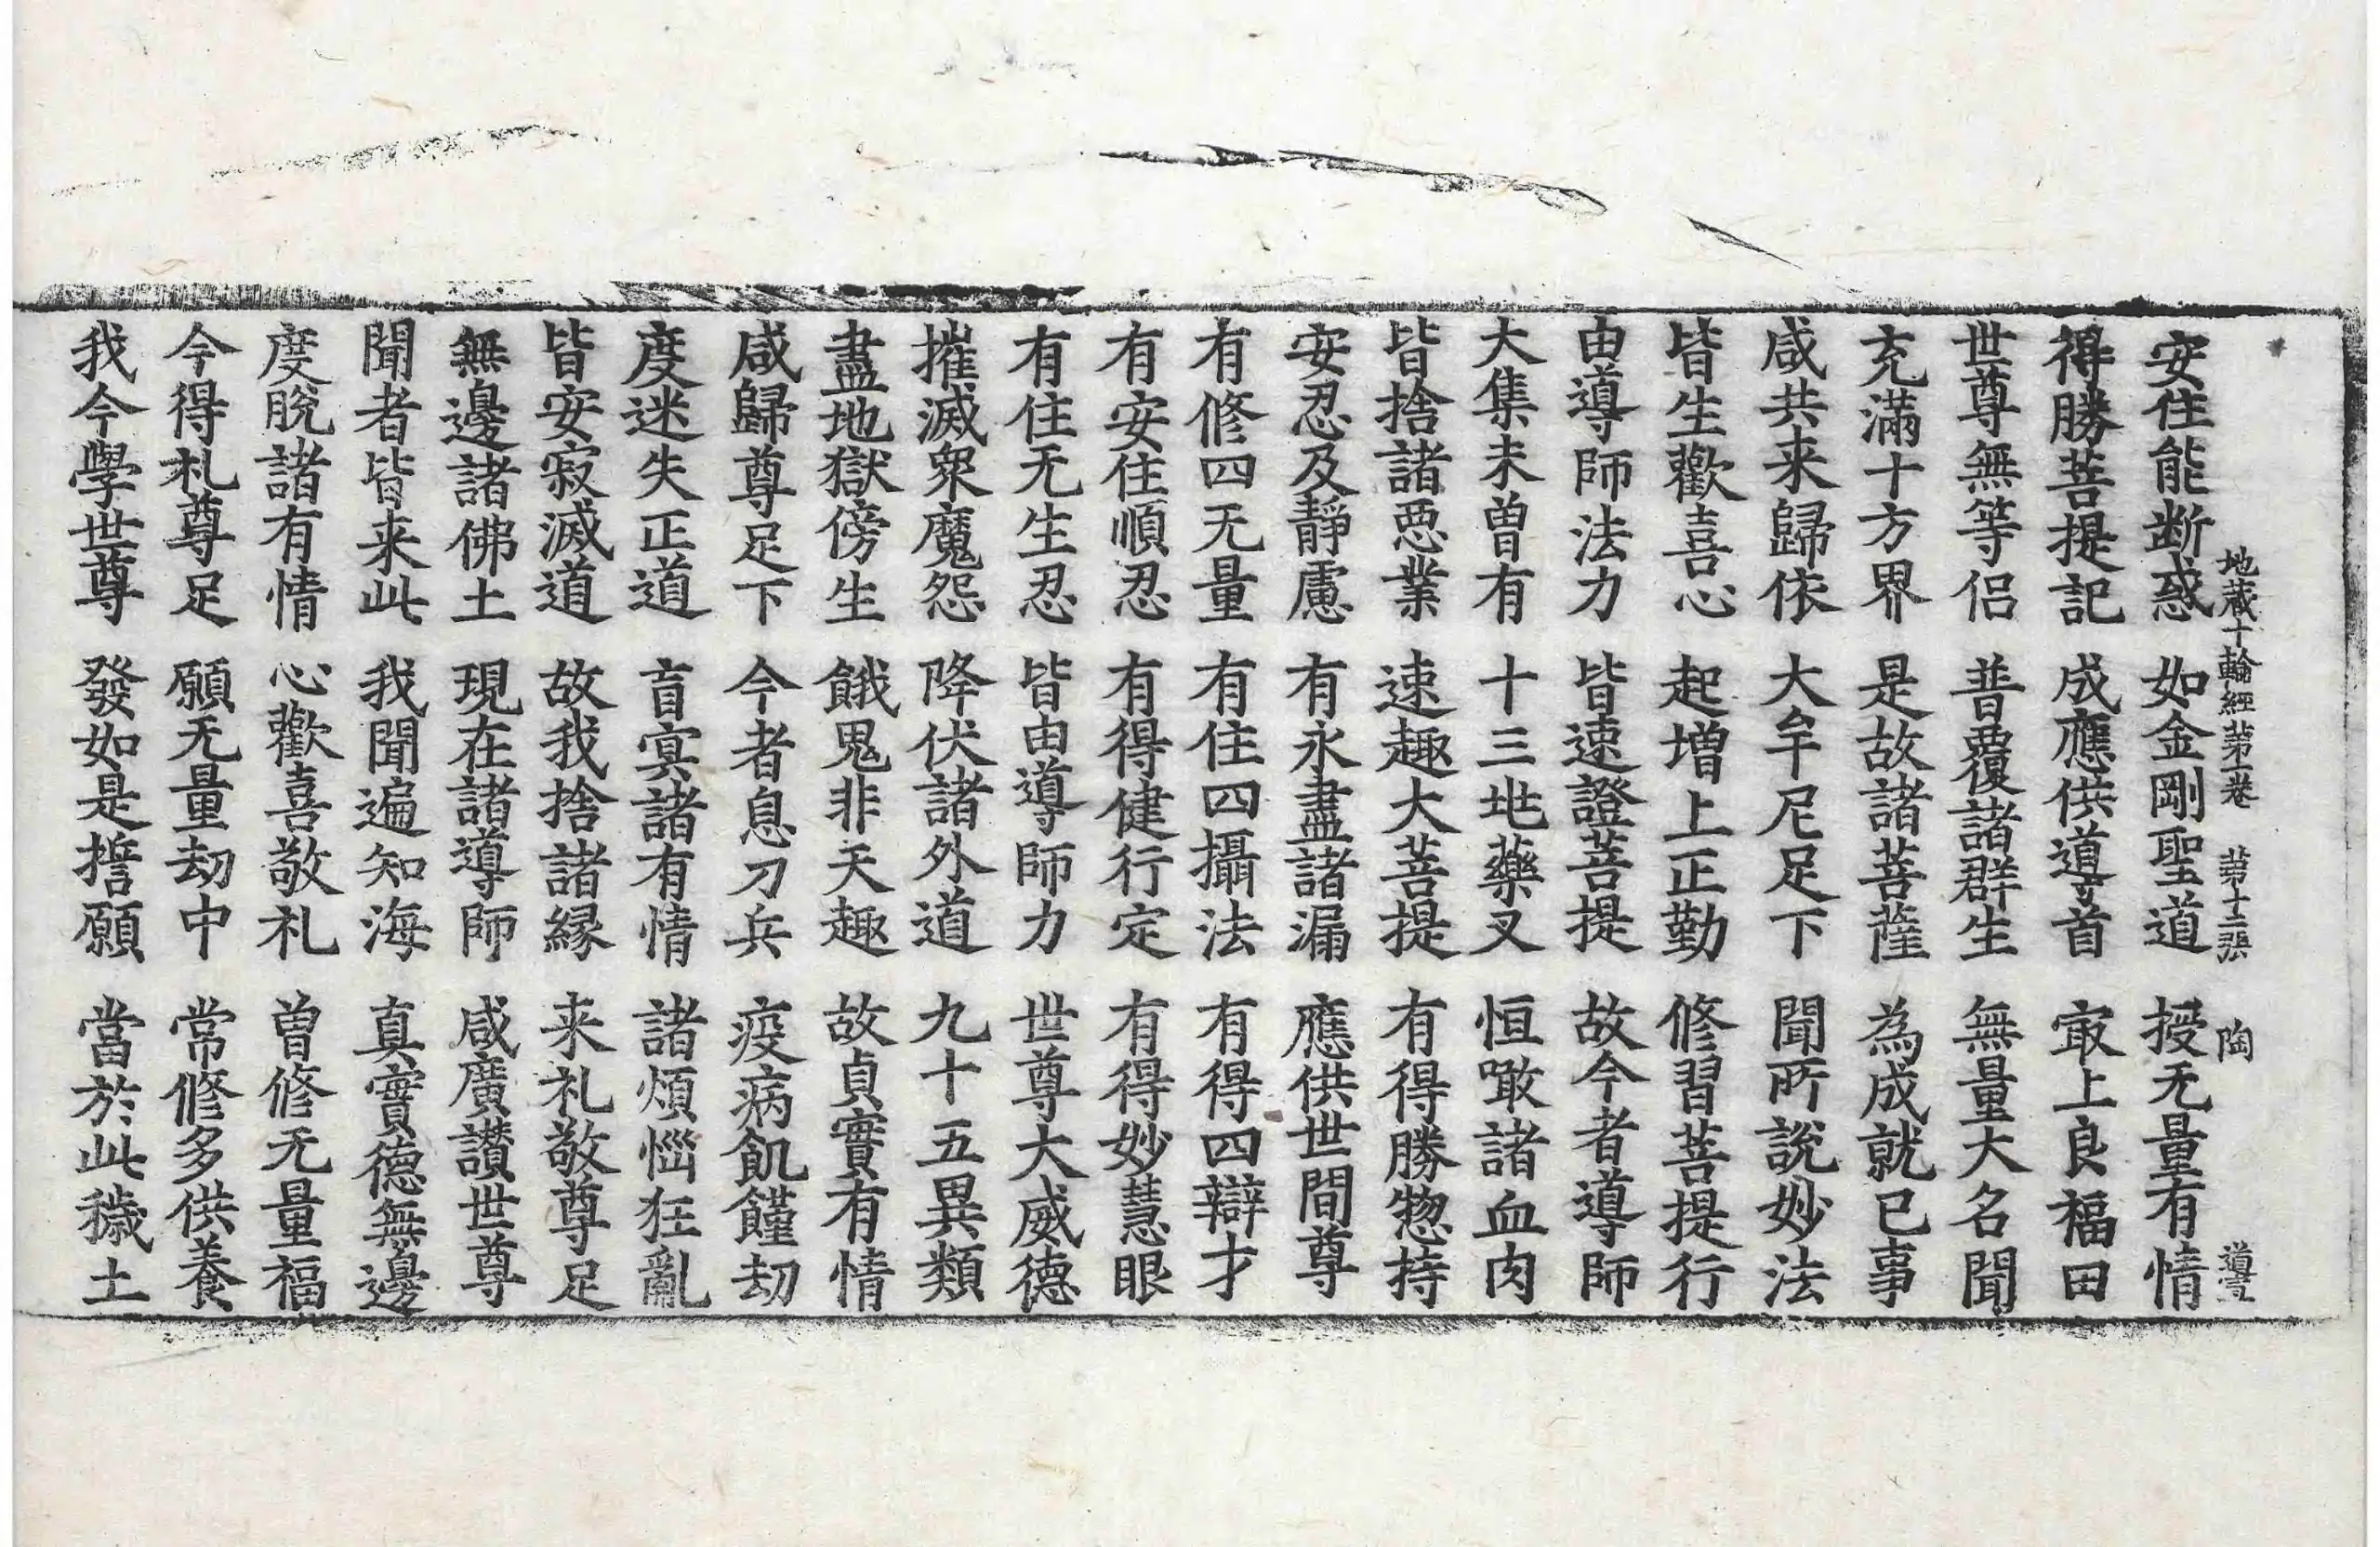 地蔵十輪經苐一卷 苐十二張 陶
安住能断惑 如金剛聖道 授无量有情
得勝菩提記 成應供導首 㝡上良福田
世尊無等侣 普覆諸群生 無量大名聞
充滿十方界 是故諸菩薩 為成就已事
咸共来歸依 大牟尼足下 聞所說妙法
皆生歡喜心 起增上正勤 修習菩提行
由導師法力 皆速證菩提 故今者導師
大集未曽有 十三垗藥叉 恒噉諸血肉
皆捨諸惡業 速趣大菩提 有得勝惣持
安忍及靜慮 有永盡諸漏 應供世間尊
有修四无量 有住四攝法 有得四辯才
有安住順忍 有得健行定 有得妙慧眼
有住无生忍 皆由導師力 世尊大威德
摧滅衆魔怨 降伏諸外道 九十五異類
盡地獄傍生 餓鬼非天趣 故貞實有情
咸歸尊足下 今者息刀兵 疫病飢饉劫
度迷失正道 盲㝠諸有情 諸煩惱狂亂
皆安寂滅道 故我捨諸緣 来礼敬尊足
無邊諸佛土 現在諸導師 咸廣讚世尊
聞者皆来此 我聞遍知海 真實德無邊
度脫諸有情 心歡喜敬礼 曽修无量福
今得礼尊足 願无量劫中 常修多供養
我今學世尊 發如是誓願 當於此穢土